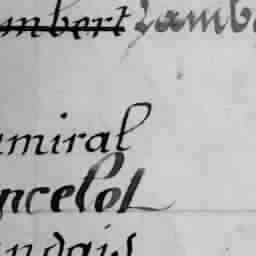 mbert Lamb
miral
ncelot
ndais